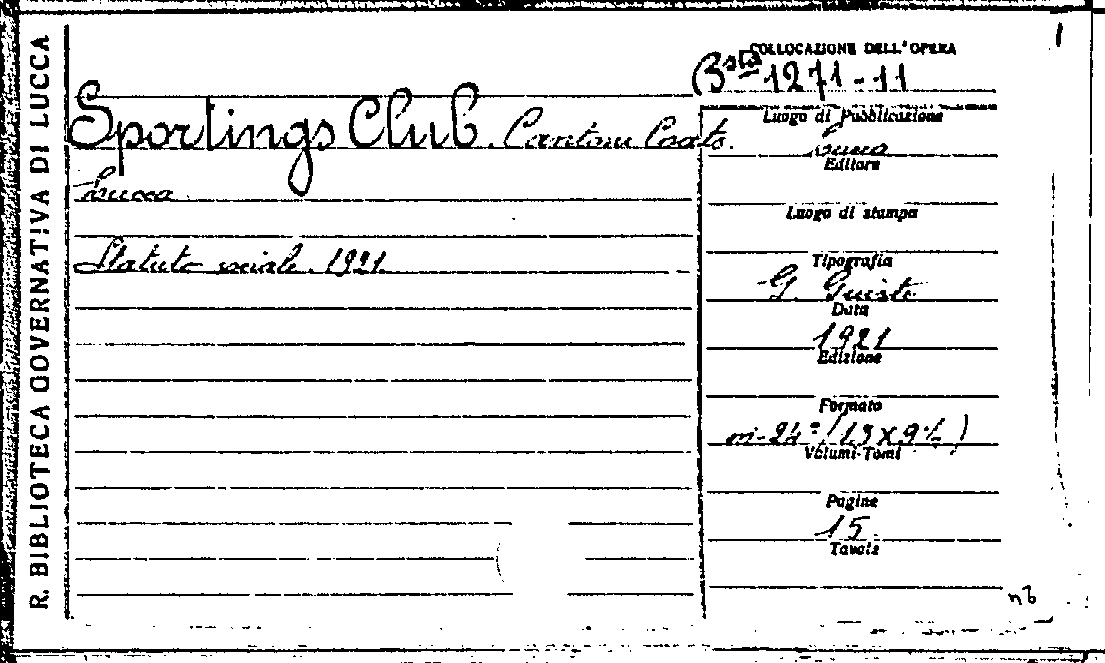 R. BIBLIOTECA GOVERNATIVA DI LUCCA
1
COLLOCAZIONE DELL'OPERA
Bsta 1271-11
Sportings Club. Cantoni Coats.
Lucca
Statuto sociale. 1921.
Luogo di Pubblicazione
Lucca
Editore
Luogo di stampa
Tipografia
G. Giusti
Data
1921
Edizione
Formato
in-24° (13x9½)
Volumi-Tomi
Pagine
15
Tavole